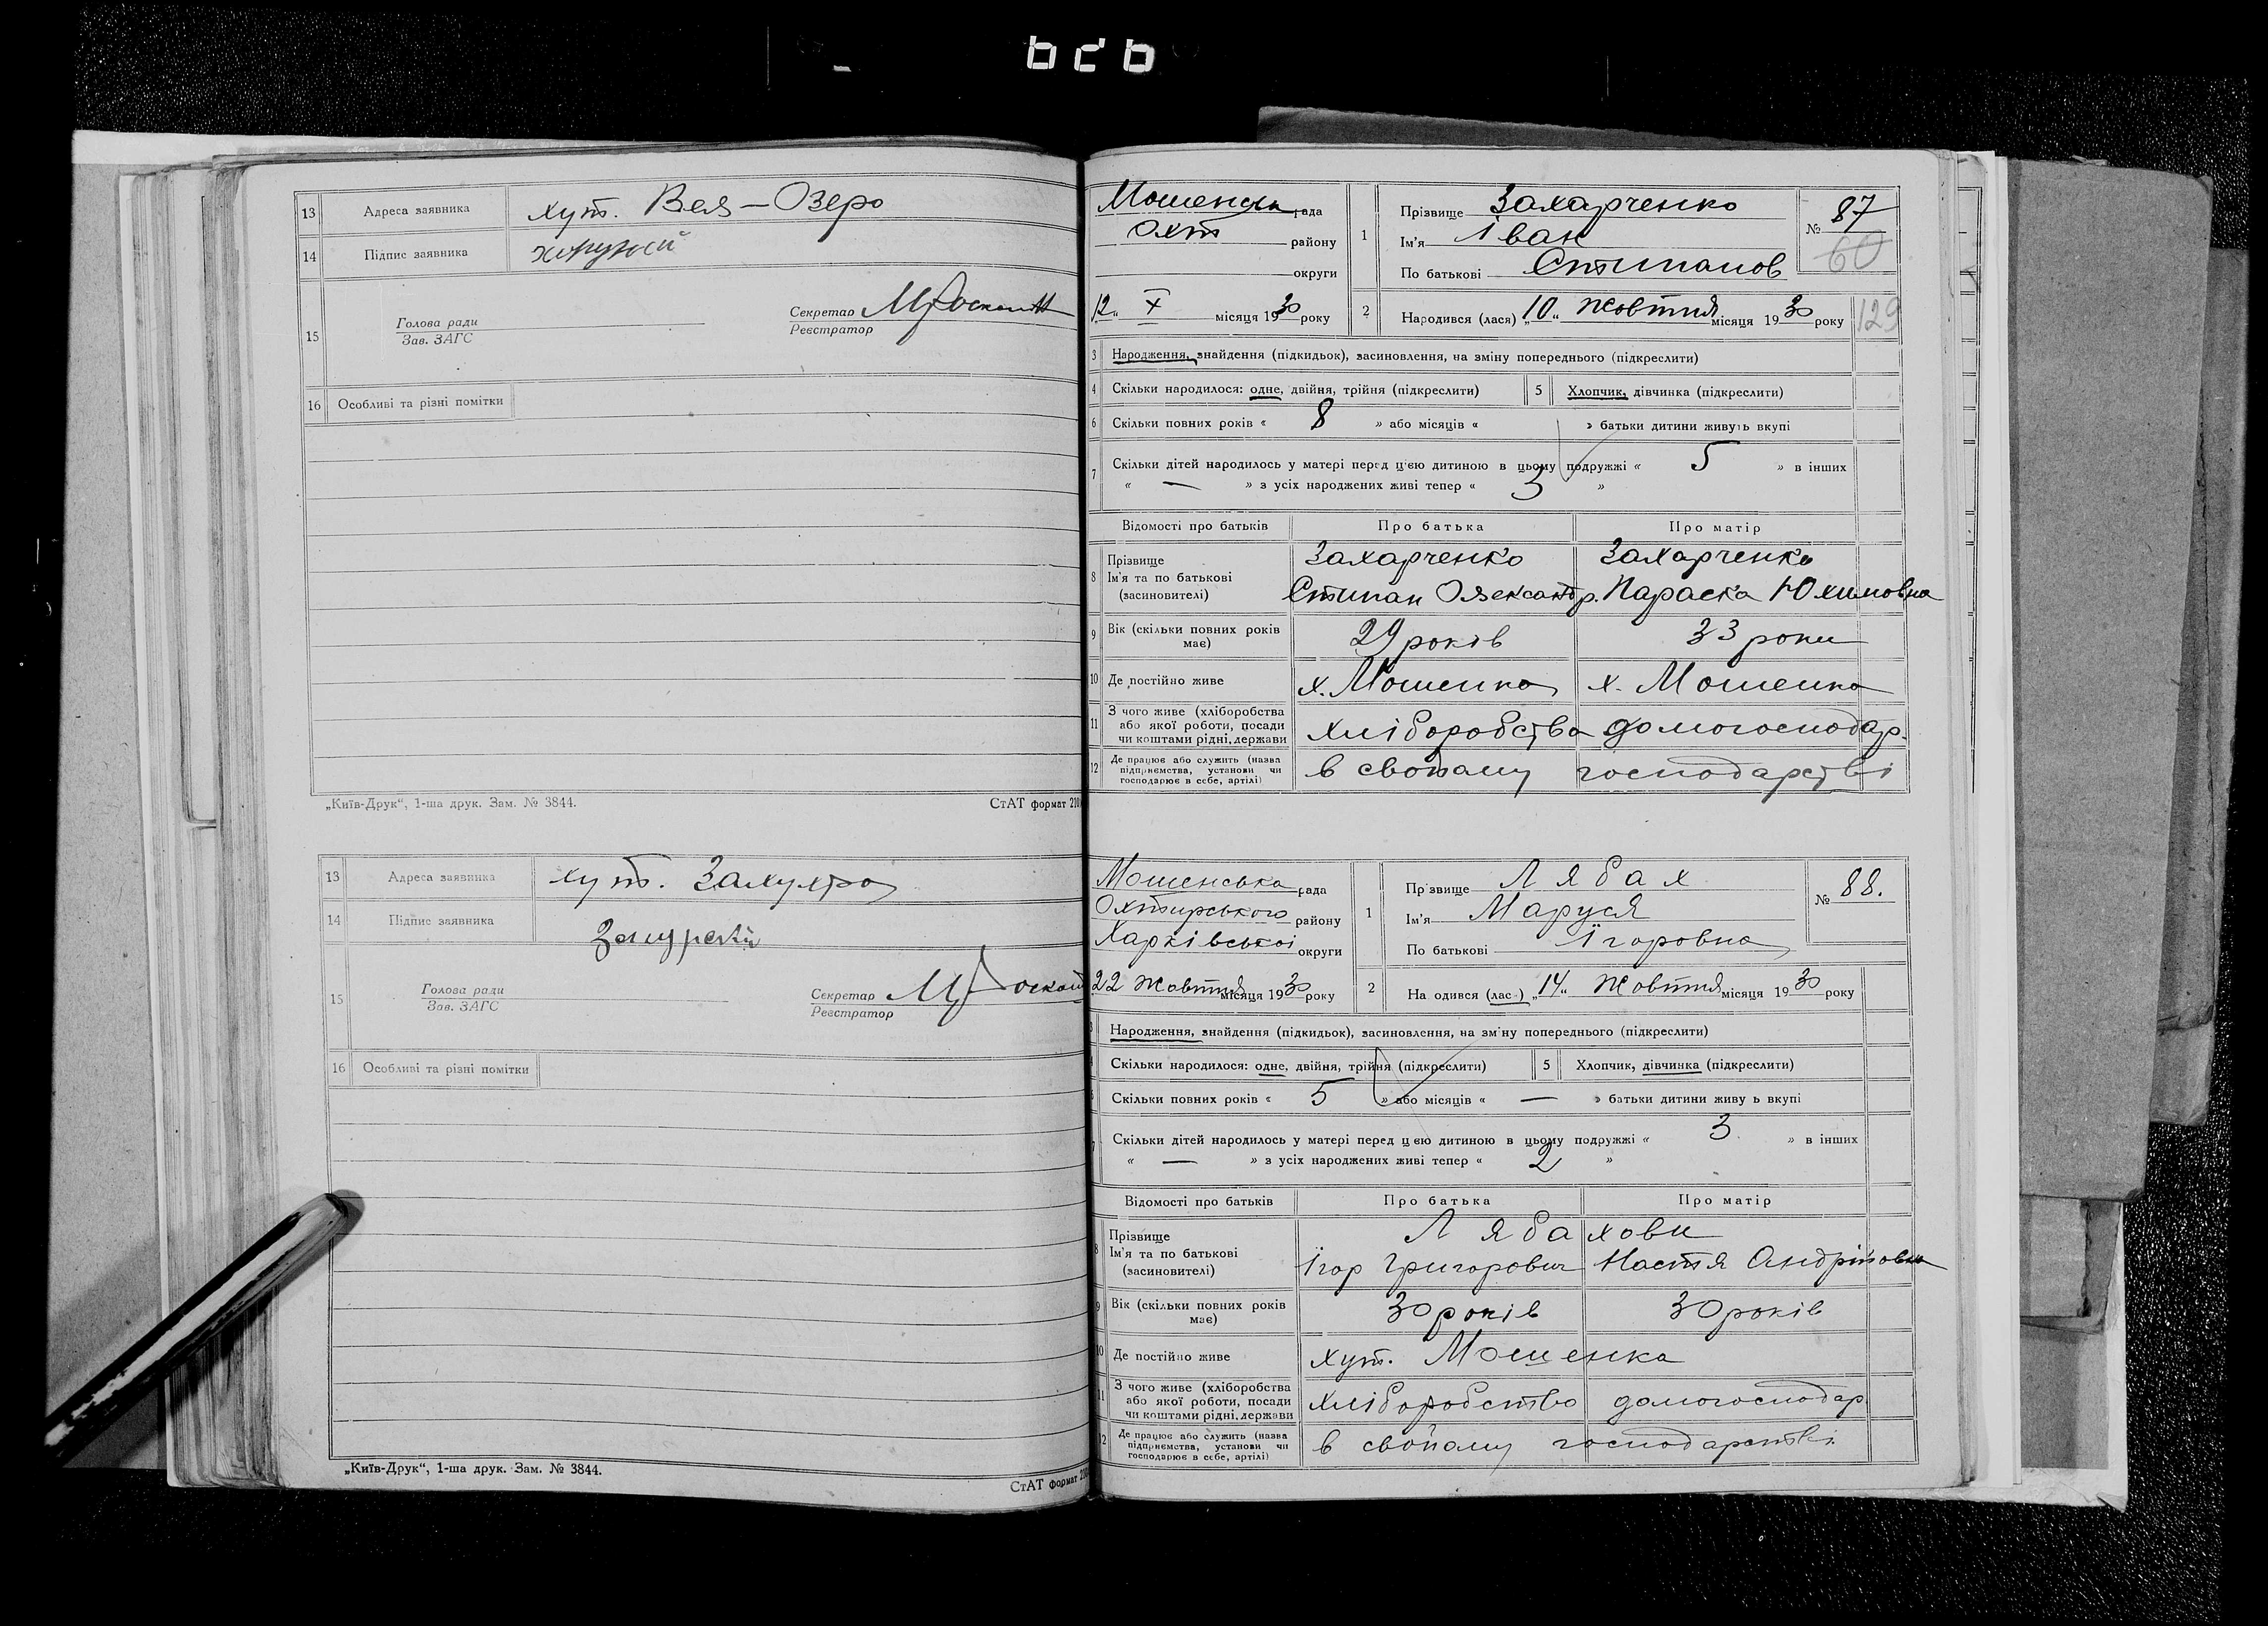 13 Адреса заявника хут. Вея-Озеро
14 Підпис заявника
15 Голова ради
Зав. ЗАГС
Секретар
Реєстратор
16 Особливі та різні помітки
„Київ-Друк“, 1-ша друк. Зам. № 3844.
СтАТ формат 210
13 Адреса заявника хут.
14 Підпис заявника
15 Голова ради
Зав. ЗАГС
Секретар
Реєстратор
16 Особливі та різні помітки
„Київ-Друк“, 1-ша друк. Зам. № 3844.
СтАТ формат
Мошенськ рада
Охт району
округи
12 „ X місяця 1930 року
1 Прізвище Захарченко
Ім'я Іван
По батькові Стипанов
№ 87
60
2 Народився (лася) „10“ Жовтня місяця 1930 року
129
3 Народження, знайдення (підкидьок), засиновлення, на зміну попереднього (підкреслити)
4 Скільки народилося: одне, двійня, трійня (підкреслити) 5 Хлопчик, дівчинка (підкреслити)
6 Скільки повних років « 8 » або місяців « » батьки дитини живуть вкупі
7 Скільки дітей народилось у матері перед цією дитиною в цьому подружжі « 5 » в інших
« — » з усіх народжених живі тепер « 3 »
Відомості про батьків Про батька Про матір
8 Прізвище Захарченко Захарченко
Ім'я та по батькові
(засиновителі) Стипан Олександр. Параска Юхимовна
9 Вік (скільки повних років має) 29 років 33 роки
10 Де постійно живе х. Мошенка х. Мошенка
11 З чого живе (хліборобства
або якої роботи, посади
чи коштами рідні, держави хліборобства домогосподар.
12 Де працює або служить (назва
підприємства, установи чи
господарює в себе, артілі) в своïому господарстві
Мошенська рада
Охтирського району
Харківської округи
22 Жовтня місяця 1930 року
1 Прізвище Лябах
Ім'я Маруся
По батькові Ігоровна
№ 88.
2 На одився (лас ) „14“ Жовтня місяця 1930 року
Народження, знайдення (підкидьок), засиновлення, на зміну попереднього (підкреслити)
Скільки народилося: одне, двійня, трійня (підкреслити) 5 Хлопчик, дівчинка (підкреслити)
Скільки повних років « 5 » або місяців « — » батьки дитини живу ь вкупі
Скільки дітей народилось у матері перед цією дитиною в цьому подружжі « 3 » в інших
« — » з усіх народжених живі тепер « 2 »
Відомості про батьків Про батька Про матір
8 Прізвище Лябахови
Ім'я та по батькові
(засиновителі) Ігор Григорович Настя Андріïовна
9 Вік (скільки повних років має) 30 років 30 років
10 Де постійно живе хут. Мошенка
11 З чого живе (хліборобства
або якої роботи, посади
чи коштами рідні, держави хліборобство домогосподар.
12 Де працює або служить (назва
підприємства, установи чи
господарює в себе, артілі) в своïому господарстві.